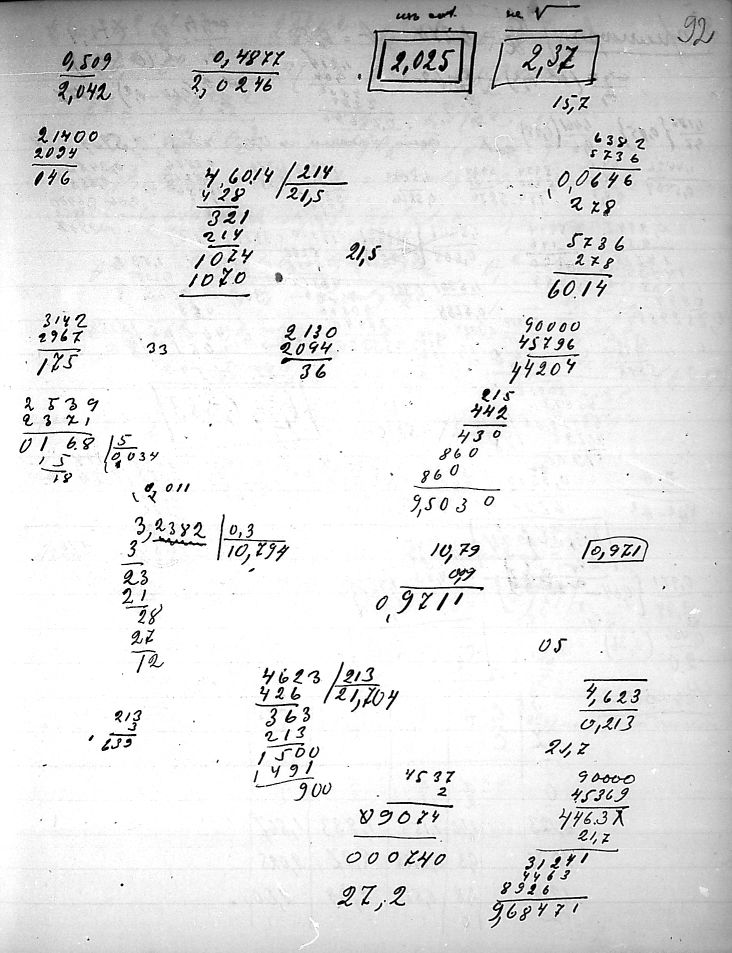 92
не √
0,509
2,042
0,4877
2,0246
2,025
2,37
15,7
21400
2094
046
4,6014 214
428 21,5
321
214
1074
1070
21,5
6382
5736
0,0646
278
5736
278
60.14
3142
2967
175
33
2130
2094
36
90000
45796
44204
2539
2371
0168 5
15 0,034
18
0,011
215
442
430
860
860
9,5030
3,2382 0,3
3 10,794
23
21
28
27
12
10,79
0,9711
0,971
05
4623 213
426 21,704
363
213
1500
1491
900
213
3
639
4,623
0,213
21,7
4537
2
09074
000740
27,2
90000
45369
446.31
21,7
31241
4463
8926
9,68471